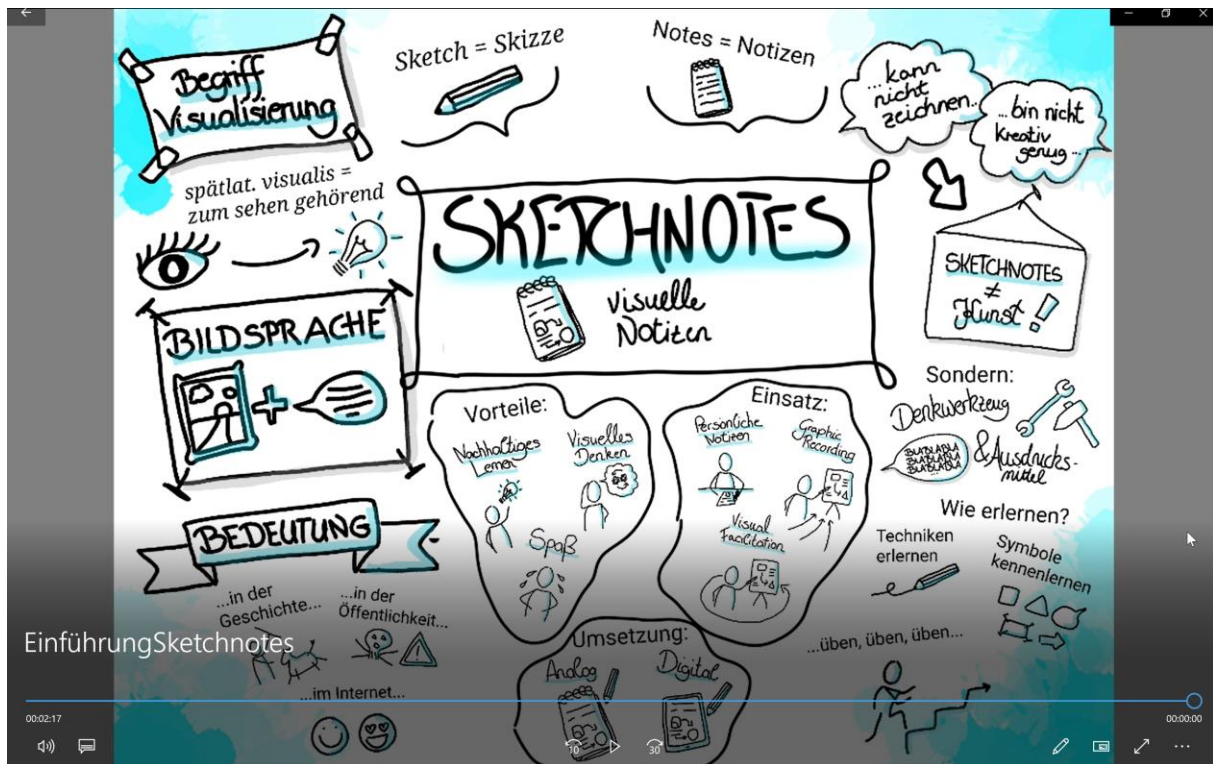 Begriff
Visualisierung
Sketch = Skizze
Notes = Notizen
...kann
nicht
zeichnen...
...bin nicht
kreativ
genug...
spätlat. visualis =
zum sehen gehörend
SKETCHNOTES
visuelle
Notizen
SKETCHNOTES
≠
Kunst!
BILDSPRACHE
Sondern:
Denkwerkzeug
BLABLABLA
BLABLABLA
BLABLABLA
& Ausdrucks-
mittel
Vorteile:
Nachhaltiges
Lernen
Visuelles
Denken
Spaß
Einsatz:
Persönliche
Notizen
Graphic
Recording
Visual
Facilitation
Wie erlernen?
Techniken
erlernen
Symbole
kennenlernen
...üben, üben, üben...
BEDEUTUNG
...in der
Geschichte...
...in der
Öffentlichkeit...
...im Internet...
Umsetzung:
Analog
Digital
EinführungSketchnotes
00:02:17
00:00:00
10
30